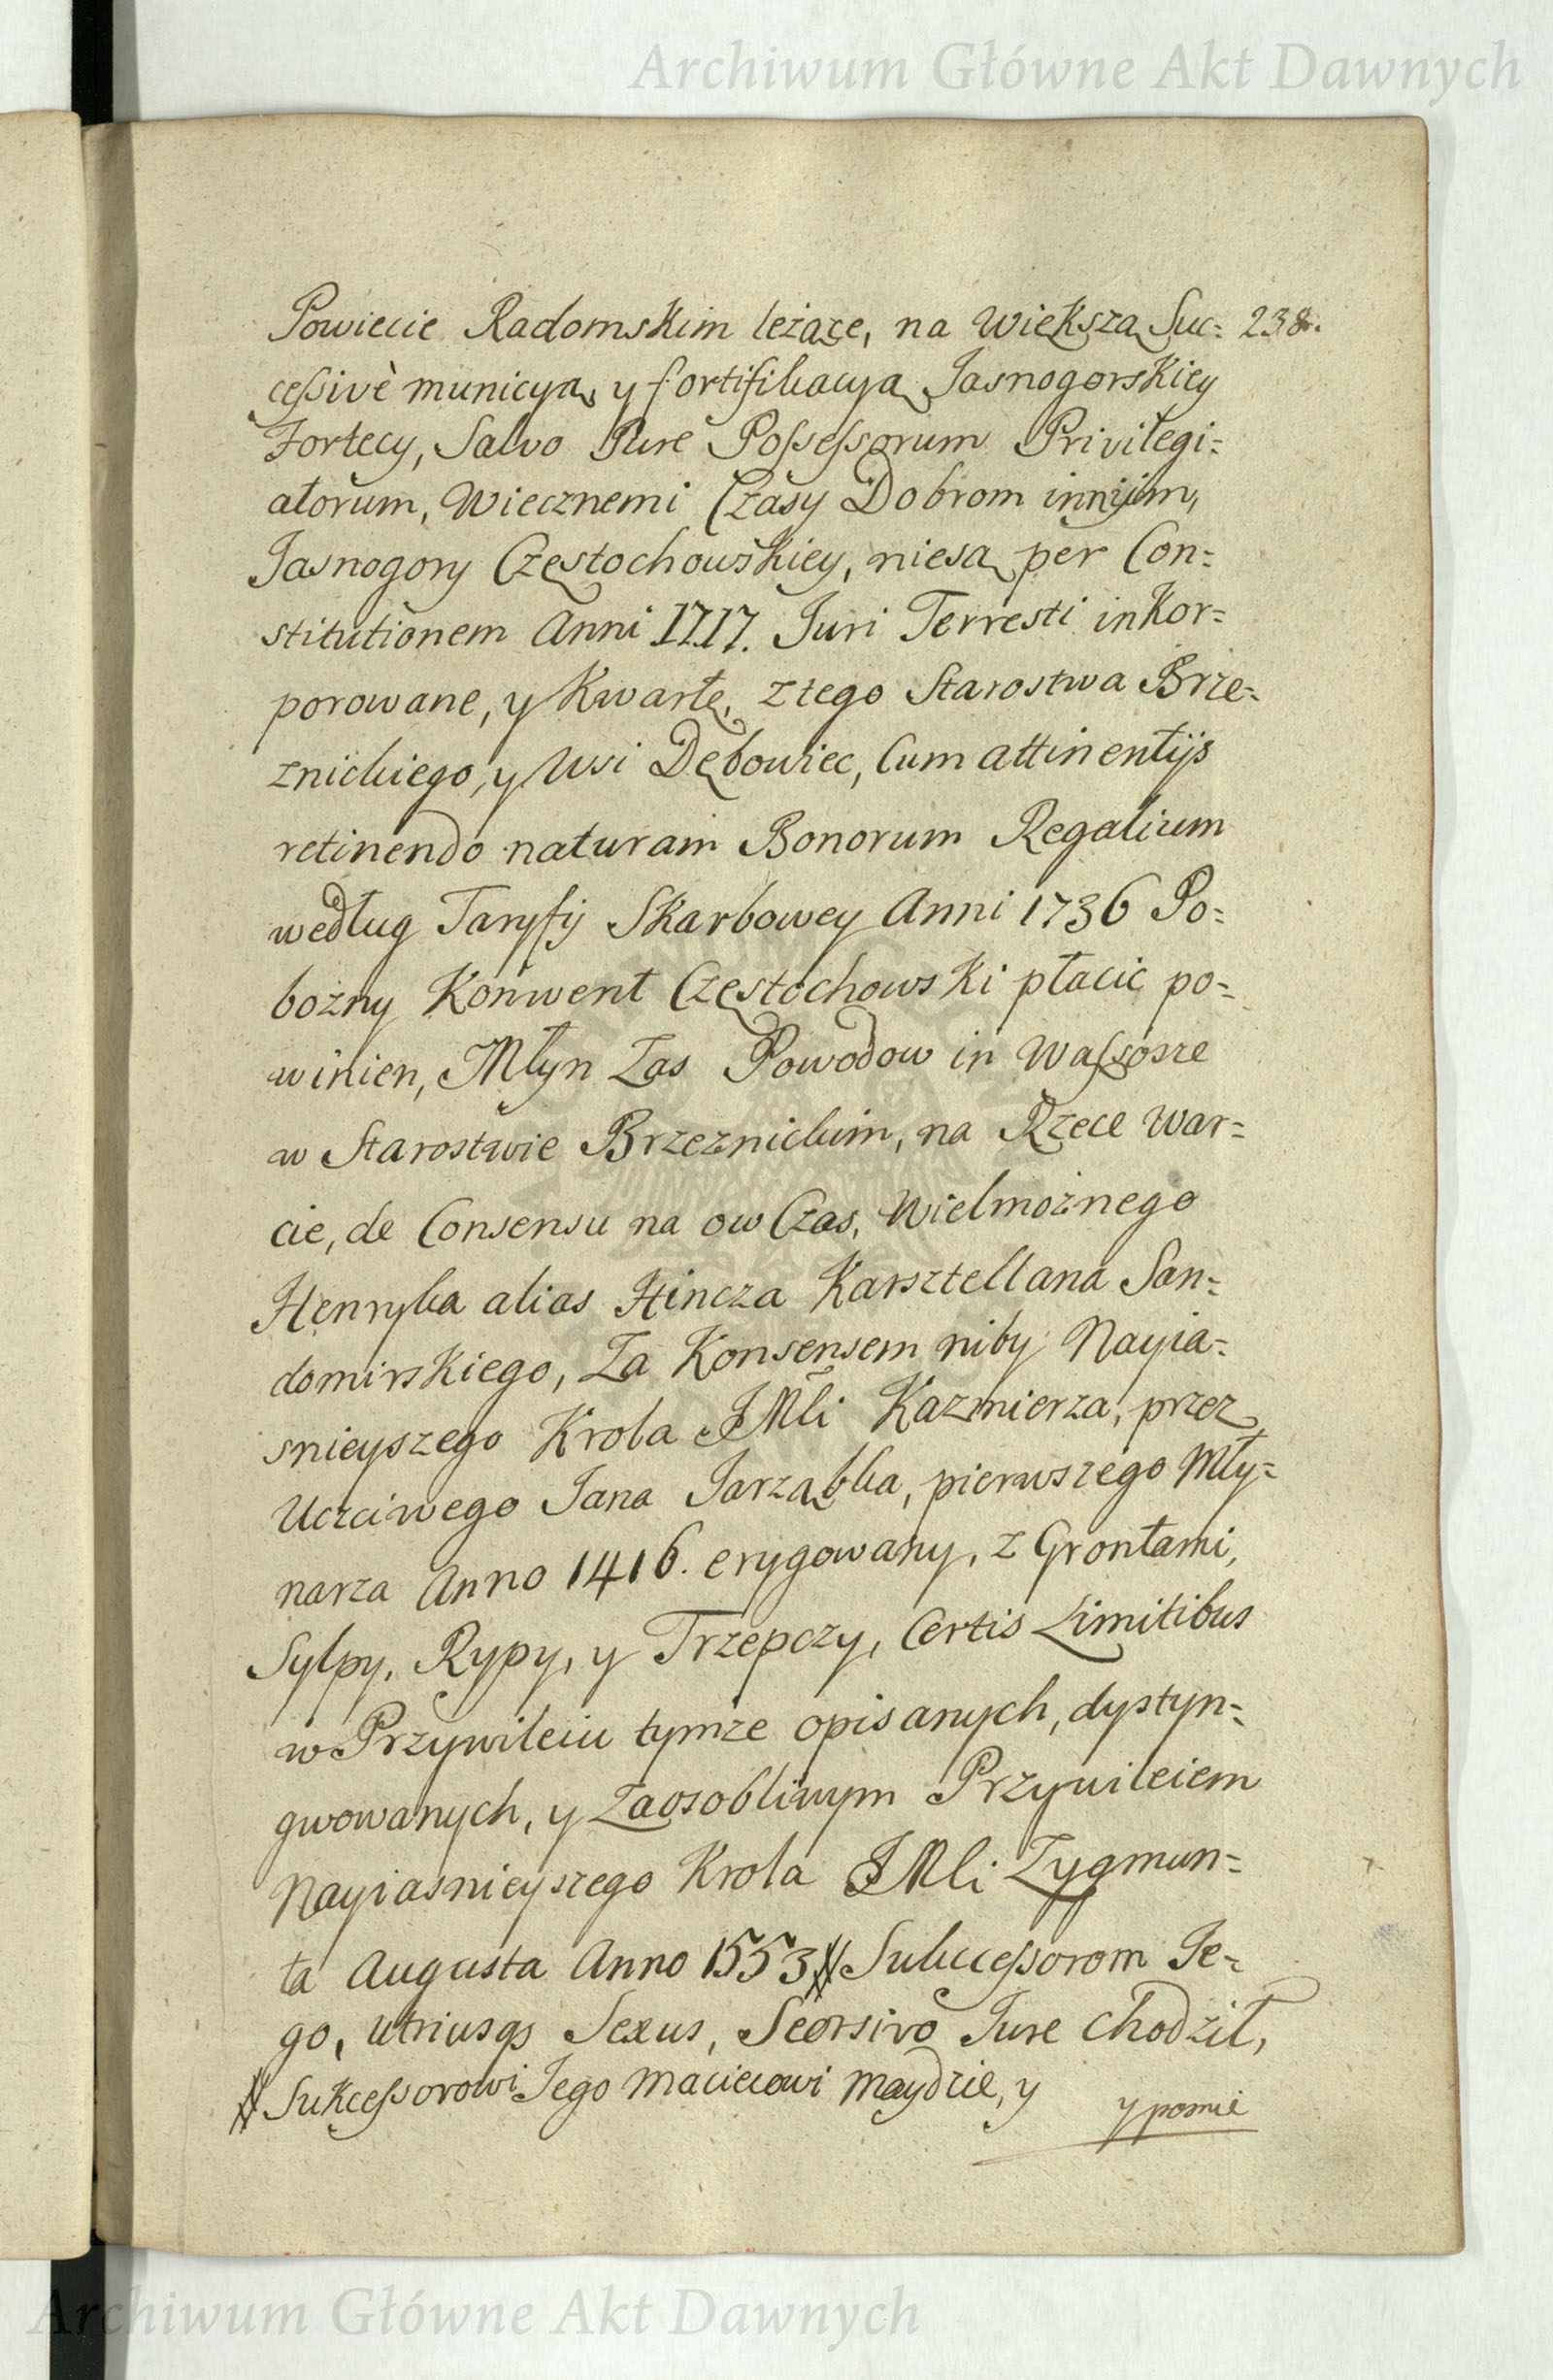 Archiwum Główne Akt Dawnych
Powiecie Radomskim leżące, na Większą Suc= 238.
cessivè municyą, y fortifikacyą Jasnogorskiey
Fortecy, Salvo Jure Possessorum Privilegi=
atorum, Wiecznemi Czasy Dobrom innÿm,
Jasnogory Częstochowskiey, niesą per Con=
stitutionem Anni 1717. Juri Terresti inkor=
porowane, y Kwartę, z tego Starostwa Brze=
znickiego, y Wsi Dębowiec, Cum attinentijs
retinendo naturam Bonorum Regalium
według Taryfÿ Skarbowey Anni 1736 Po=
bożny Konwent Częstochowski płacić po=
winien, Młyn Zas Powodow in Wąssosze
w Starostwie Brzeznickim, na Rzece War=
cie, de Consensu na ow Czas, Wielmożnego
Henryka alias Hincza Karsztellana San=
domirskiego, Za Konsensem niby Nayia=
snieyszego Krola JMĉi Kazmierza, przez
Uczciwego Jana Jarząbka, pierwszego Mły=
narza Anno 1416. erygowany, z Grontami,
Sylpy, Rypy, y Trzepczy, Certis Limitibus
w Przywileiu tymże opisanych, dystyn=
gwowanych, y Zaosobliwym Przywileiem
Nayiasnieyszego Krola JMci Zygmun=
ta Augusta Anno 1553 # Sukcessorom Je=
go, utriusqs Sexus, Seorsivo Jure chodził,
# Sukcessorowi Jego Macieiowi Maydzie, y y pomie
Archiwum Główne Akt Dawnych